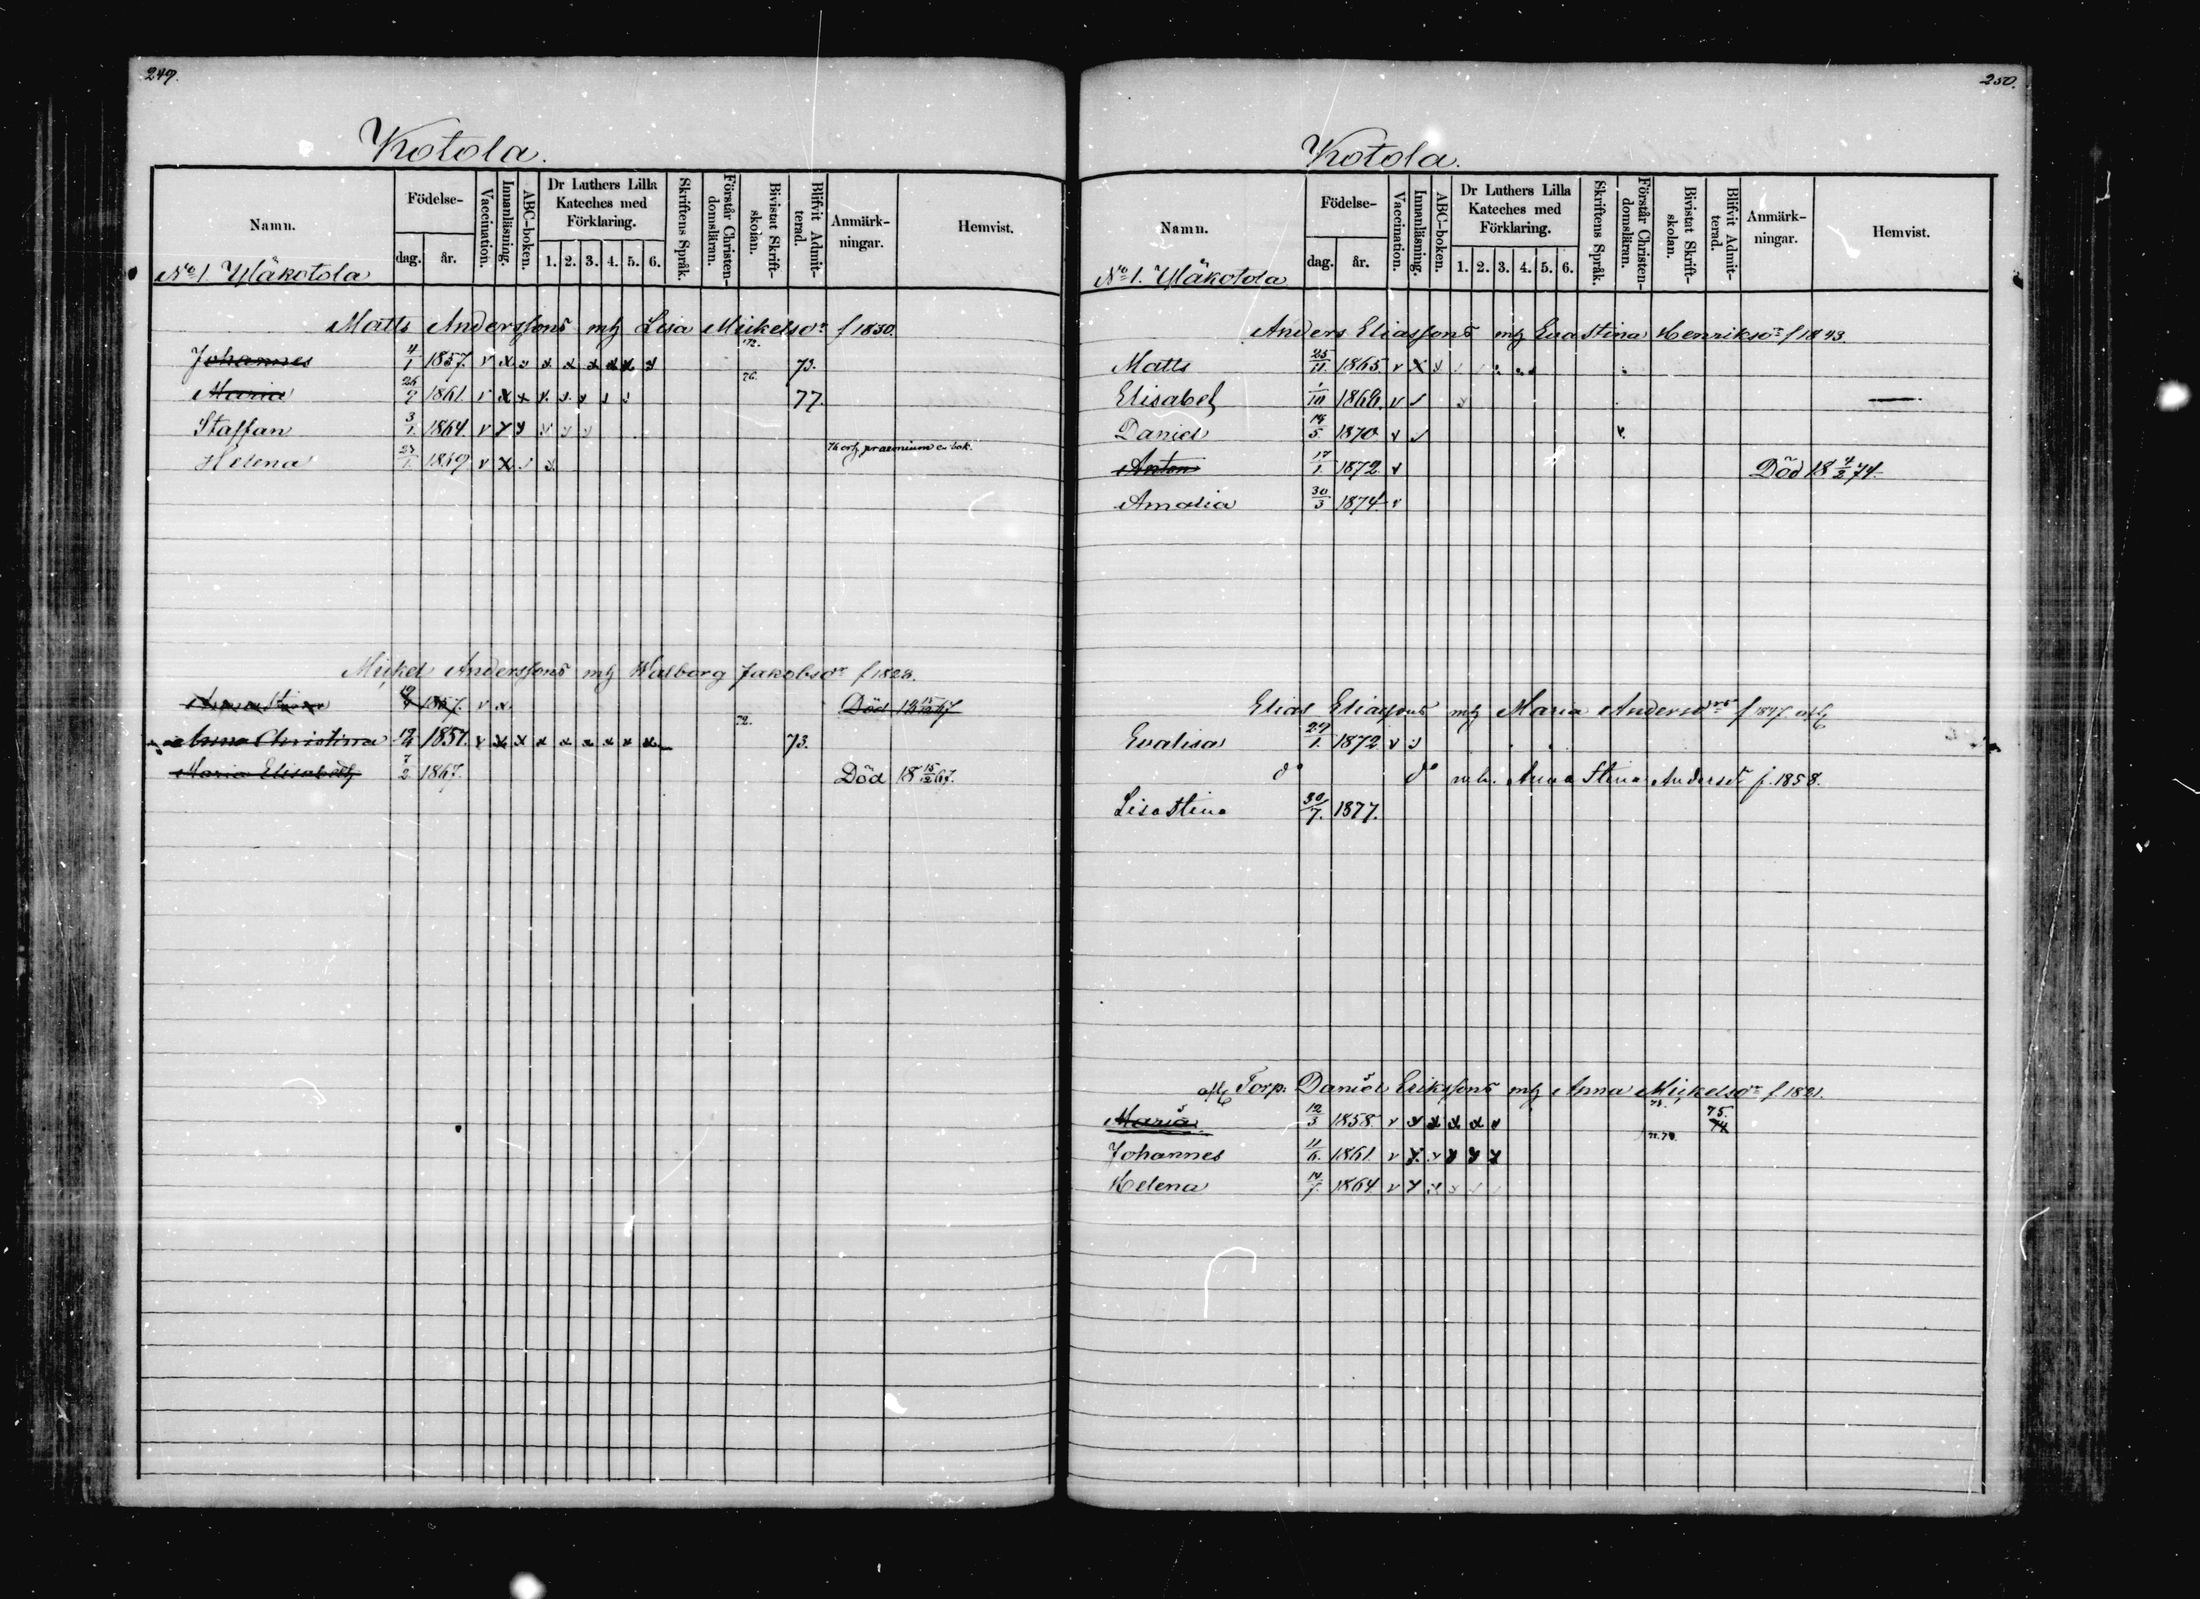 249.
Kotola.
Namn. Födelse- dag. år. Vaccination. Innanläsning. ABC-boken. Dr Luthers Lilla Kateches med Förklaring. 1. 2. 3. 4. 5. 6. Skriftens Språk. Förstår Christendomsläran. Bivistat Skriftskolan. Blifvit Admitterad. Anmärkningar. Hemvist.
No 1. Yläkotola
Matts Anderssons mh Lisa Mickelsdr f 1830.
Johannes 4/1 1857. v x v x x x x x x 72. 73.
Maria 1861 76. 77.
Staffan 3/1. 1864. v
Helena praemium en bok.
Mickel Anderssons mh Walborg Jakobsdr
1857. v x Död
Anna Christina 1857. v x x x x x x x x 72. 73.
Maria Elisabeth 7/2 1867. Död 18 15/2 67.
250.
Kotola.
Namn. Födelse- dag. år. Vaccination. Innanläsning. ABC-boken. Dr Luthers Lilla Kateches med Förklaring. 1. 2. 3. 4. 5. 6. Skriftens Språk. Förstår Christendomsläran. Bivistat Skriftskolan. Blifvit Admitterad. Anmärkningar. Hemvist.
No 1. Yläkotola
Anders Eliassons mh Eva Stina Henriksdr f 1843.
Matts 25/11. 1865. v x v
Elisabet v
Daniel 1870 v
Anton 17/1. 1872. v Död 18 4/2 74.
Amalia 30/3 1874. v
Elias Eliassons mh Maria Andersdr f 1847
Evalisa 29/1. 1872 v
do do mh. Anna Stina Andersdr f. 1858.
Lisa Stina 30/7. 1877.
Torp. Daniel Erikssons mh Anna Mickelsdr f 1821.
Maria 12/3 1858. v x x x x v 75. 74
Johannes 11/6. 1861. v x v x x x
Helena 1864. v